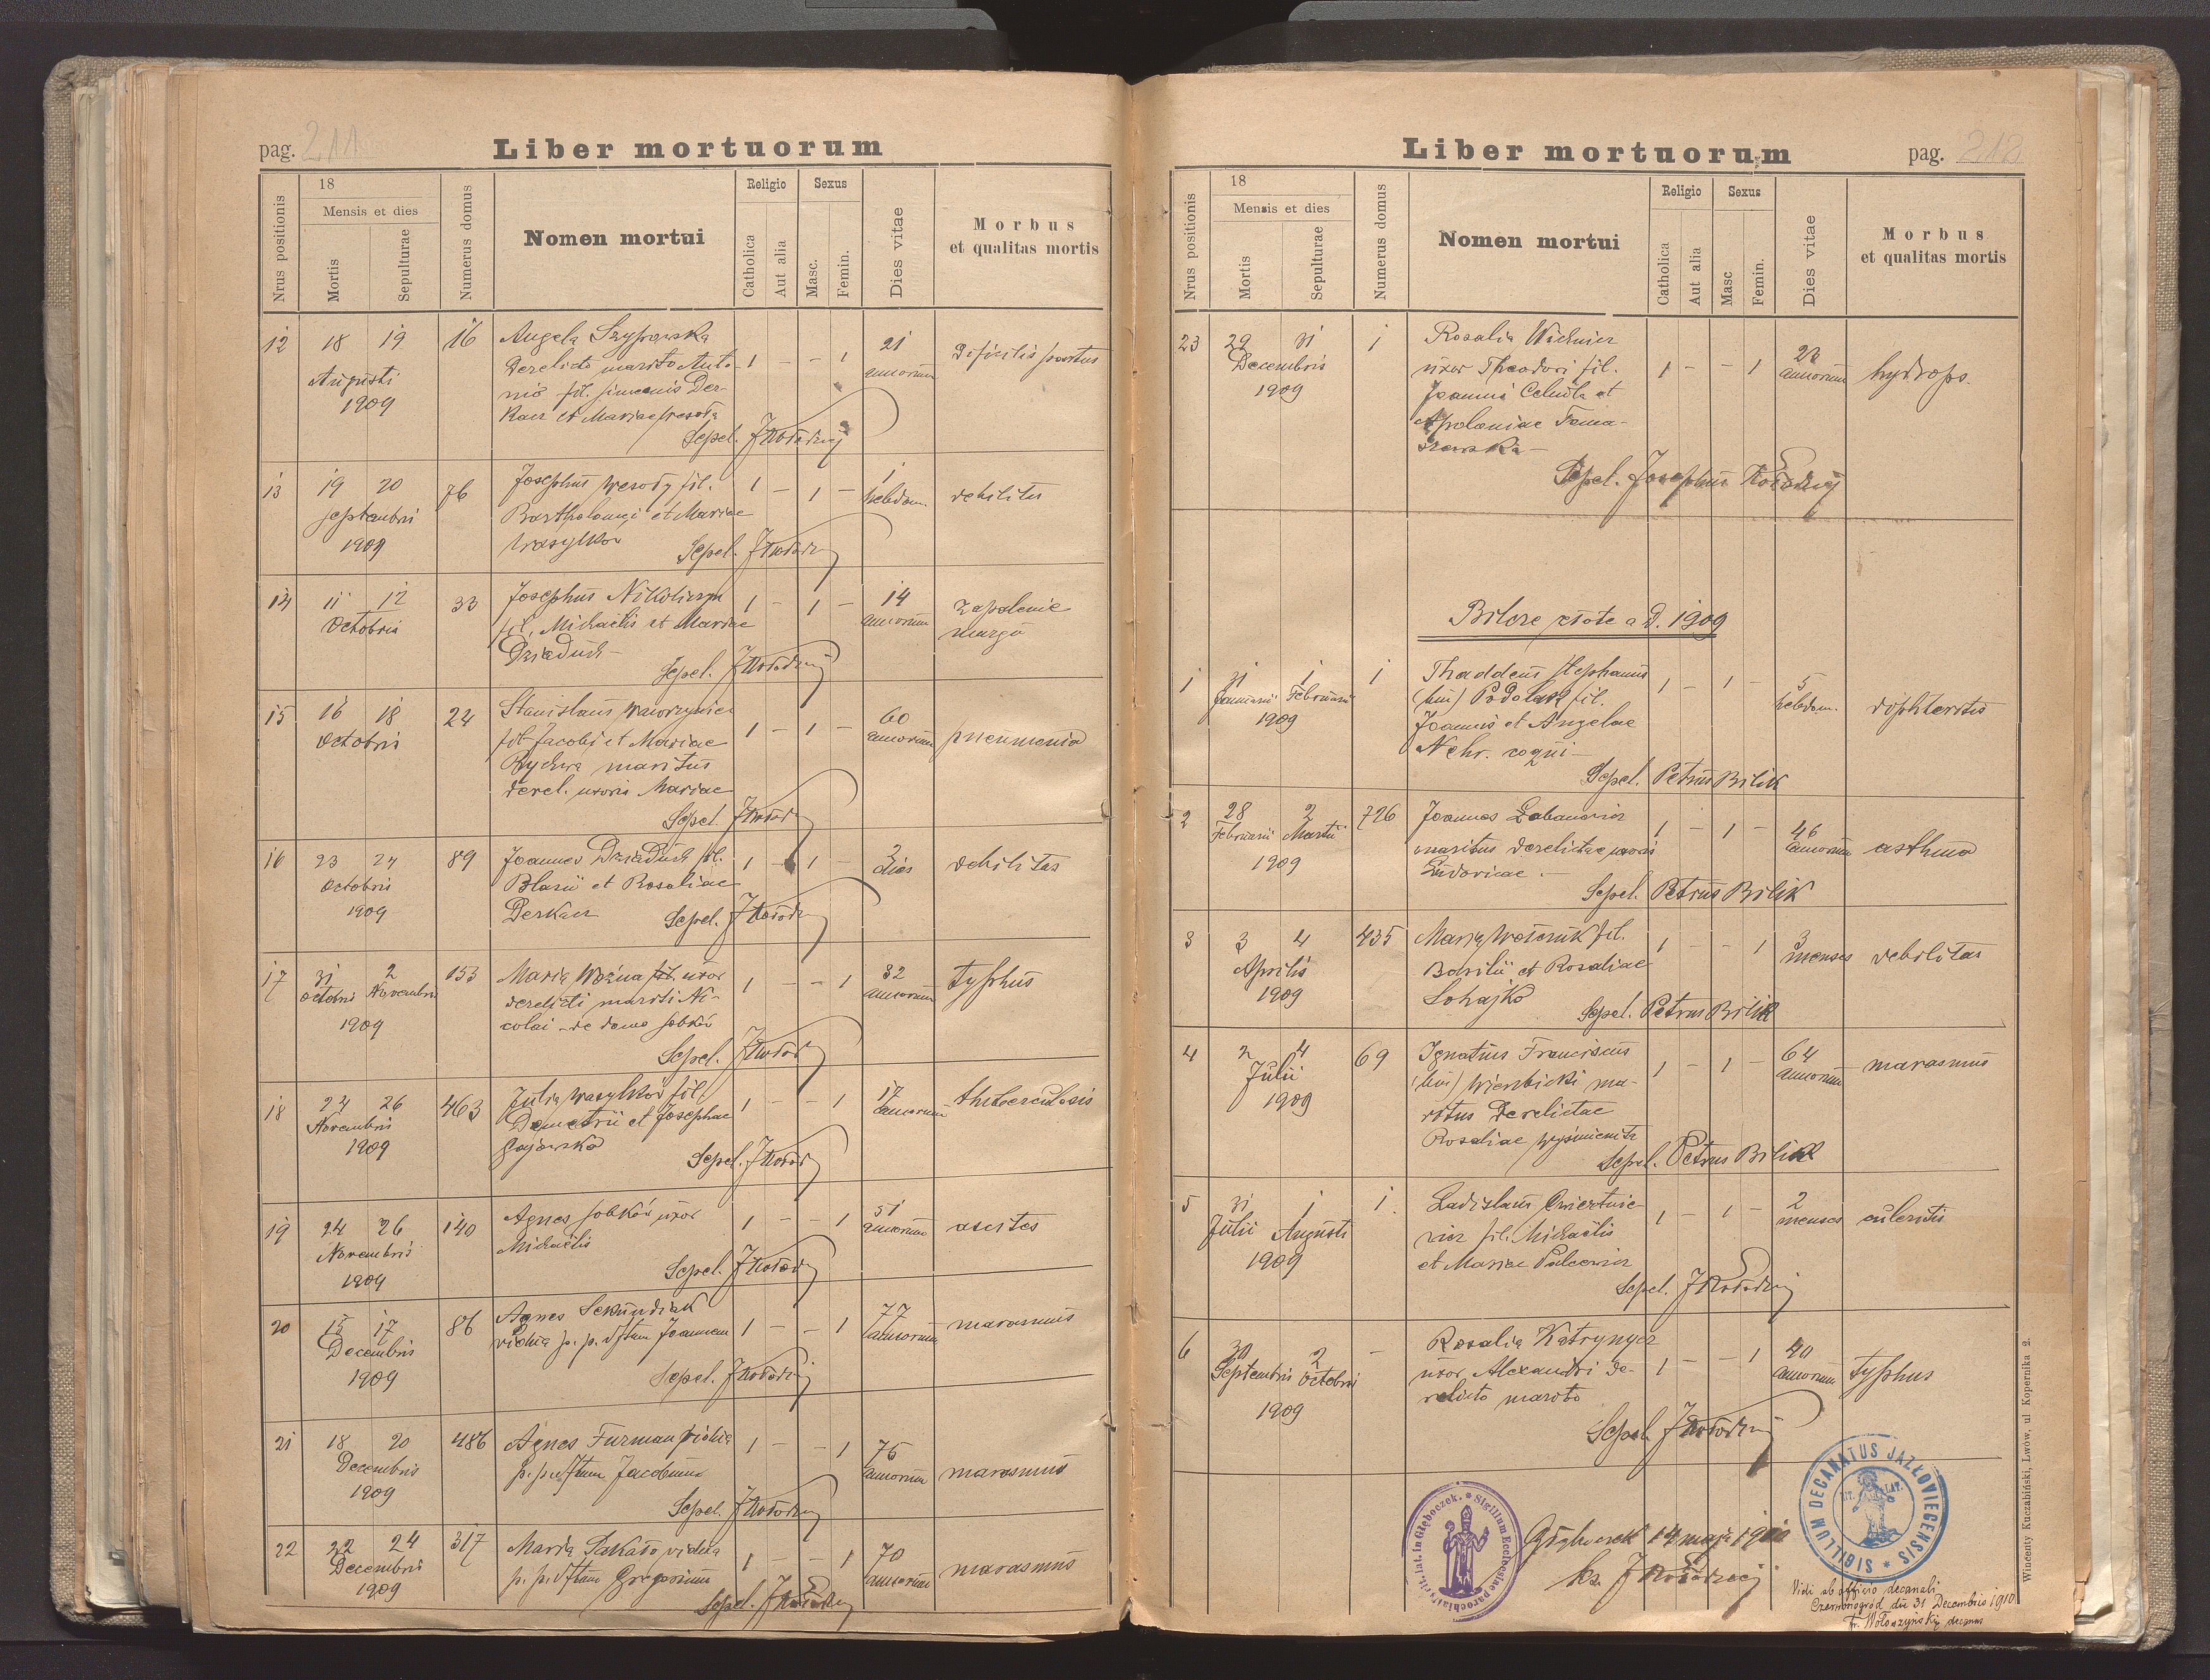 pag. 211
Liber mortuorum
Nrus positionis
18
Mensis et dies
Mortis
Sepulturae
Numerus domus
Nomen mortui
Religio
Catholica
Aut alia
Sexus
Masc.
Femin.
Dies vitae
Morbus
et qualitas mortis
12 18 19 16 Angela
Derelicto marito Anto-
nio fil. Simeonis Der-
kacz et Mariae Wesoła
Augusti
1909
1 - - 1
21
annorum
Dificilis partus
Sepel. JKołodziej
13 19 20 76 Josephus Wesoły fil.
Bartholomei et Mariae
Wasylków
Septembri
1909
1 - 1 -
1
hebdom.
debilitas
Sepel. JKołodziej
14 11 12 33 Josephus
fil. Michaelis et Mariae
Dziaduch
Octobris
1 - 1 -
14
annorum
zapalenie
mózgu
Sepel. JKołodziej
15 16 18 24 Stanislaus Wawrzyniec
fil. Jacobi et Mariae
maritus
derel. uxoris Mariae
Octobris
1 - 1 -
60
annorum
pneumonia
Sepel. JKołodziej
16 23 24 89 Joannes Dziaduch fil.
Blasii et Rosaliae
Derkacz
Octobris
1909
1 - 1 -
2
dies
debilitas
Sepel. JKołodziej
17 31 2 153 Maria Woźna uxor
derelicti mariti Ni-
colai - de domo Sobków
Octobris Novembris
1909
1 - - 1
32
annorum
typhus
Sepel. JKołodziej
18 24 26 463 Julia Wasylków fil.
Demetrii et Josephae
Gajewska
Novembris
1909
1 - - 1
17
annorum
thuberculosis
Sepel. JKołodziej
19 24 26 140 Agnes Sobków uxor
Michaelis
Novembris
1909
1 - - 1
51
annorum
ascites
Sepel. JKołodziej
20 15 17 86 Agnes Sekundiak
vidua p. p. dftum Joannem
Decembris
1909
1 - - 1
77
annorum
marasmus
Sepel. JKołodziej
21 18 20 486 Agnes Furman vidua
p. p. dftum Jacobum
Decembris
1909
1 - - 1
75
annorum
marasmus
Sepel. JKołodziej
22 22 24 317 Maria Sakało vidua
p. p. dftum Gregorium
Decembris
1909
1 - - 1
70
annorum
marasmus
Sepel. JKołodziej
Liber mortuorum
pag. 212
Nrus positionis
18
Mensis et dies
Mortis
Sepulturae
Numerus domus
Nomen mortui
Religio
Catholica
Aut alia
Sexus
Masc
Femin.
Dies vitae
Morbus
et qualitas mortis
23 29 31 1 Rosalia
uxor Theodori fil.
Joannis et
Apoloniae Toma-
szewska
Decembris
1909
1 - - 1
annorum
hydrops.
Sepel. Josephus Kołodziej
Bilcze złote a D. 1909
1 31 1 1 Thaddeus Stephanus
(bin) Podolak fil.
Joannis et Angelae
Januarii Februarii
1909
1 - 1 -
5
hebdom.
diphteritis
Sepel. Petrus Bilik
2 28 2 726 Joannes Łabanowicz
maritus derelictae uxoris
Ludovicae
Februarii Martii
1909
1 - 1 -
46
annorum
asthma
Sepel. Petrus Bilik
3 3 4 435 Maria Wołczuk fil.
Basilii et Rosaliae
Łohajko
Aprilis
1909
1 - - 1
3
menses
debilitas
Sepel. Petrus Bilik
4 2 4 69 Ignatius Franciscus
(bin) Wierzbicki ma-
ritus derelictae
Rosaliae
Julii
1909
1 - 1 -
64
annorum
marasmus
Sepel. Petrus Bilik
5 31 1 1 Ladislaus Ćwiertnie-
wicz fil. Michaelis
et Mariae
Julii Augusti
1909
1 - 1 -
2
menses
Sepel. JKołodziej
6 30 2 - Rosalia Katrynycz
uxor Alexandri de-
relicto marito
Septembris Octobris
1909
1 - - 1
40
annorum
typhus
Sepel. JKołodziej
Sigillum Ecclesiae parochialis rit. lat. in Głęboczek.
14 maja 1910
ks. JKołodziej
SIGILLUM DECANATUS JAZŁOVIECENSIS
RIT. LAT.
Vidi ab officio decanali
Czerwonogród die 31 Decembris 1910
Fr. Wołoszyński decanus
Wincenty Kuczabiński, Lwów, ul Kopernika 2.